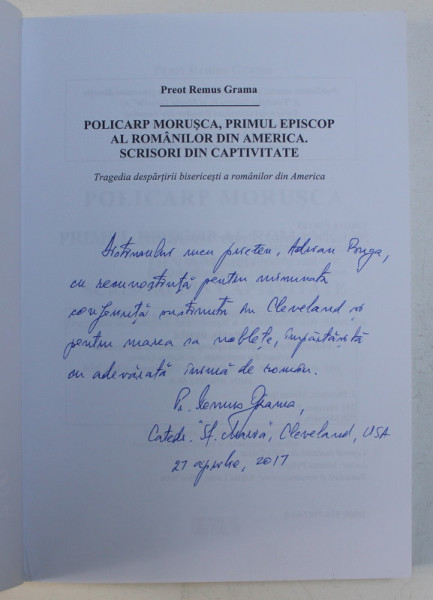 Preot Remus Grama
POLICARP MORUȘCA, PRIMUL EPISCOP
AL ROMÂNILOR DIN AMERICA.
SCRISORI DIN CAPTIVITATE
Tragedia despărțirii bisericești a românilor din America
Distinsului meu prieten, Adrian
cu recunoștință pentru minunata
conferință susținută în Cleveland și
pentru marea sa noblețe, împărtășită
cu adevărată inimă de român.
Pr. Remus Grama,
Catedr. "Sf. Maria", Cleveland, USA
27 aprilie, 2017